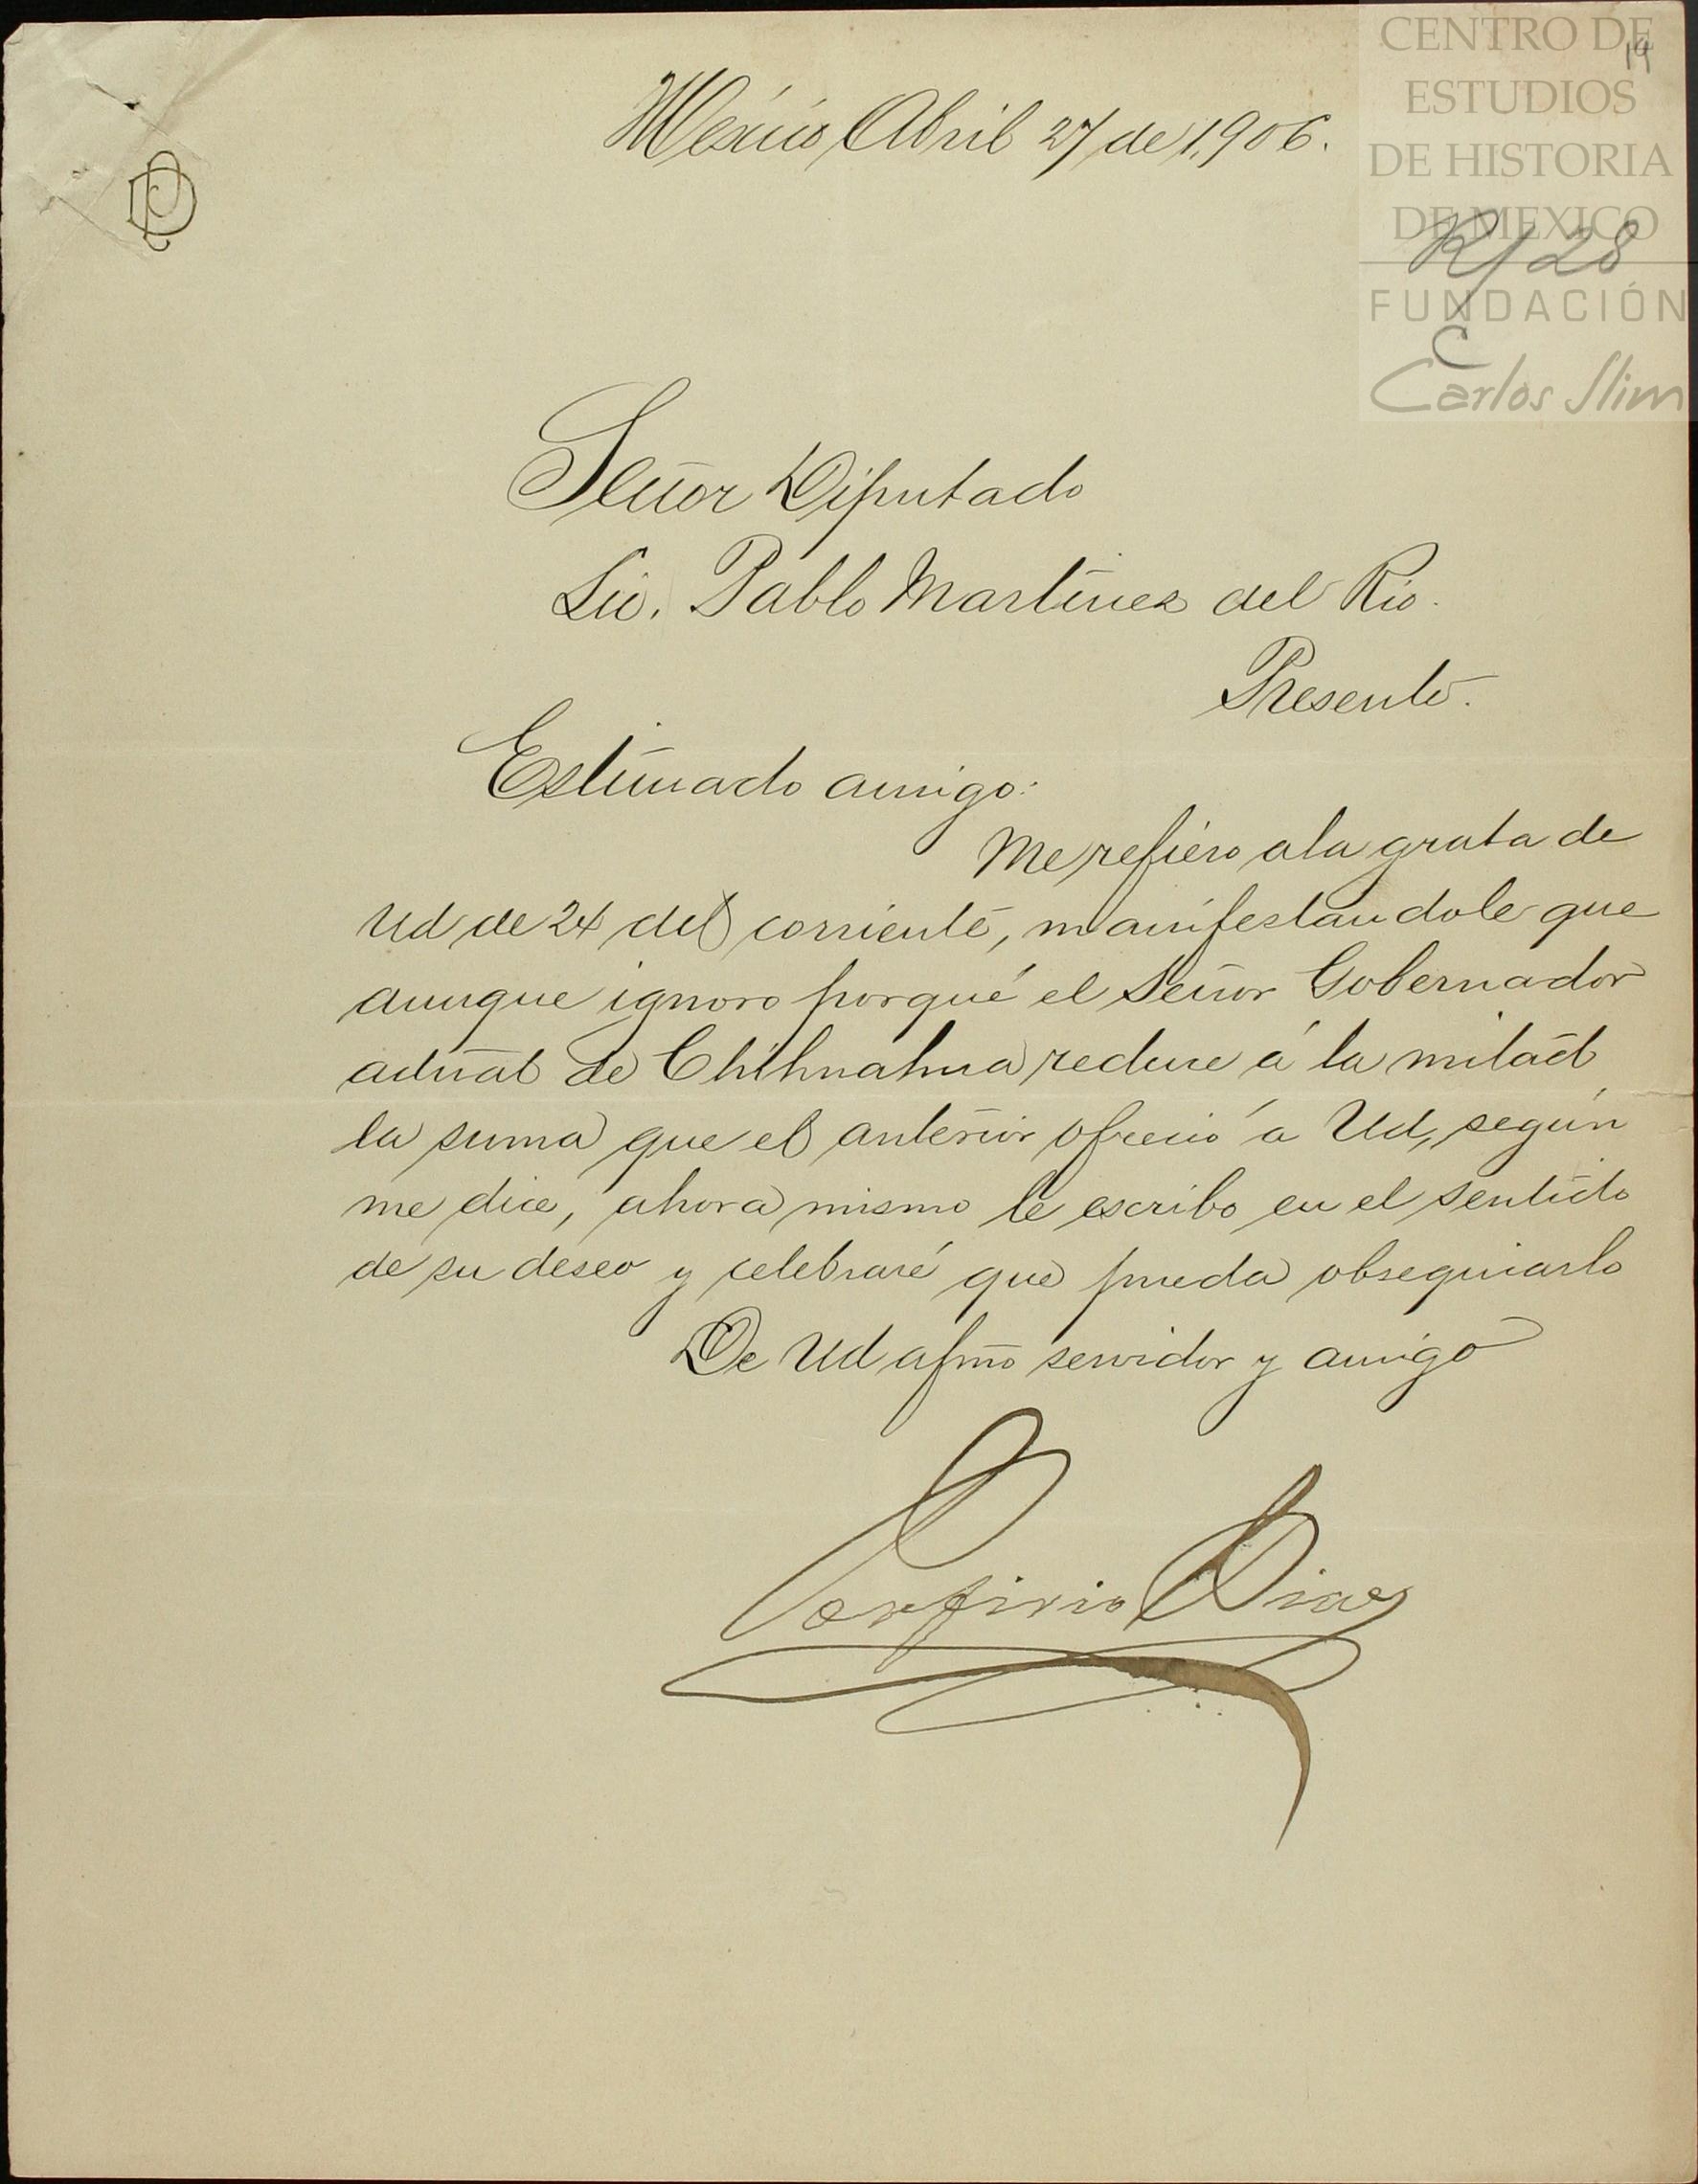 CENTRO DE
ESTUDIOS
DE HISTORIA
DE MEXICO
FUNDACIÓN
Carlos Slim
19
R/28
C
PD
México, Abril 27 de 1,906.
Señor Diputado
Lic. Pablo Martínez del Rio.
Presente.
Estimado amigo:
Me refiero a la grata de
Ud de 24 del corriente, manifestandole que
aunque ignoro porqué el Señor Gobernador
actual de Chihuahua reduce á la mitad
la suma que el anterior ofreció á Ud, según
me dice, ahora mismo le escribo en el sentido
de su deseo y celebraré que pueda obsequiarlo
De Ud afmo servidor y amigo
Porfirio Diaz